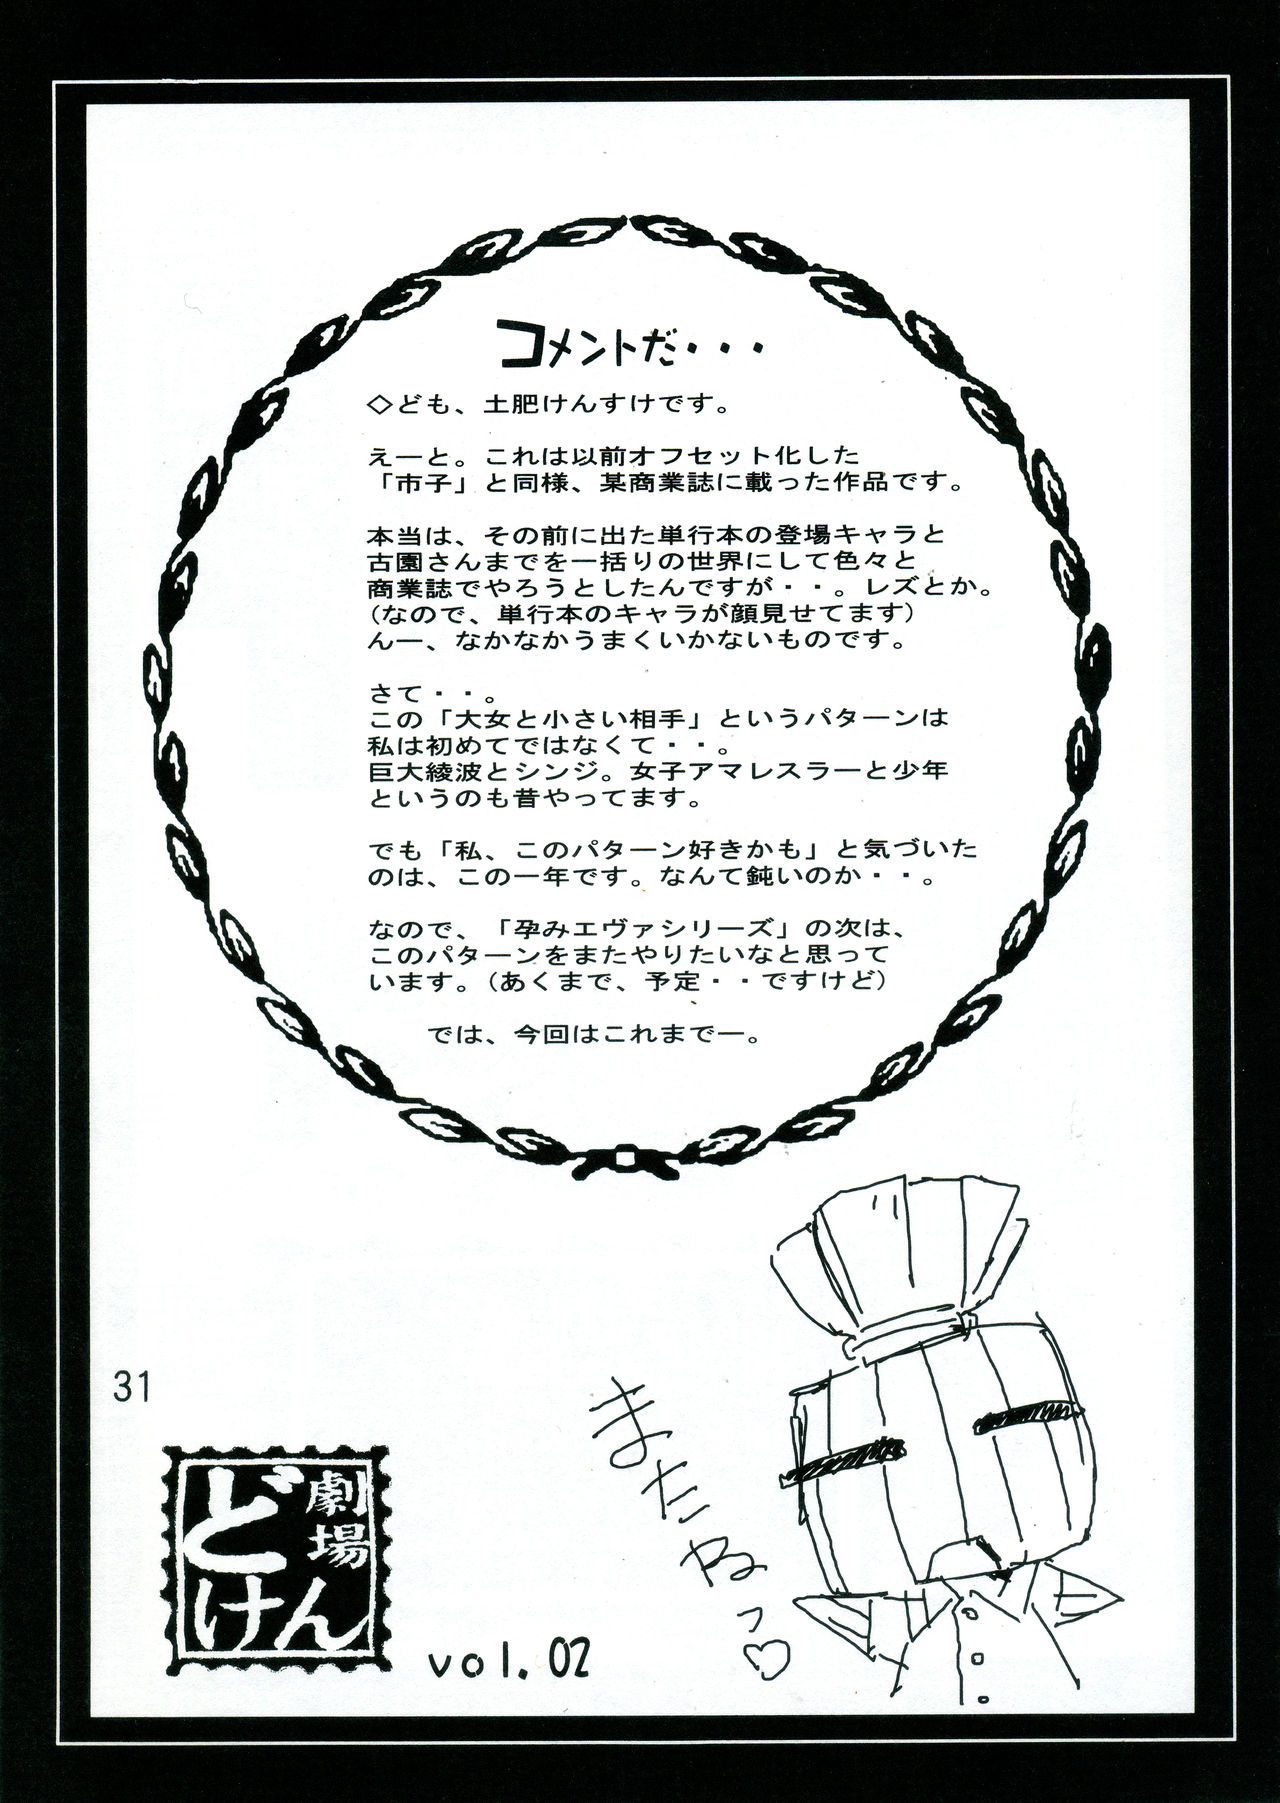 コメントだ・・・
◇ども、土肥けんすけです。
えーと。これは以前オフセット化した
「市子」と同様、某商業誌に載った作品です。
本当は、その前に出た単行本の登場キャラと
古園さんまでを一括りの世界にして色々と
商業誌でやろうとしたんですが・・。レズとか。
(なので、単行本のキャラが顔見せてます)
んー、なかなかうまくいかないものです。
さて・・。
この「大女と小さい相手」というパターンは
私は初めてではなくて・・。
巨大綾波とシンジ。女子アマレスラーと少年
というのも昔やってます。
でも「私、このパターン好きかも」と気づいた
のは、この一年です。なんて鈍いのか・・。
なので、「孕みエヴァシリーズ」の次は、
このパターンをまたやりたいなと思って
います。(あくまで、予定・・ですけど)
では、今回はこれまでー。
31
劇場
どけん
vol.02
またねっ♡